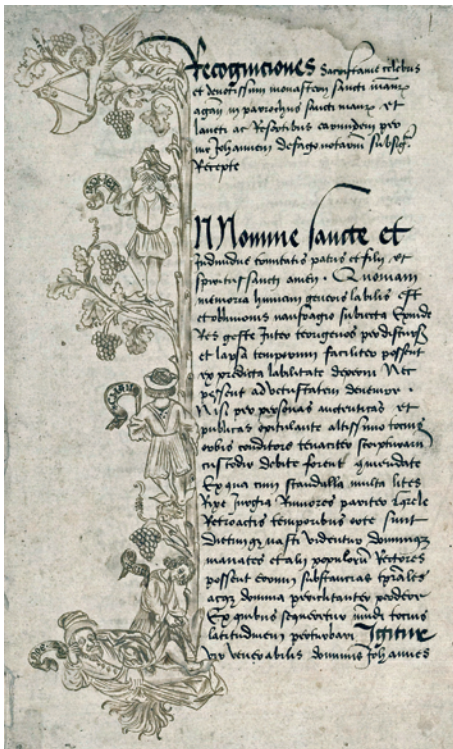 Recogniciones Sacristanie celebris
et devotissimi monasterij sancti maurc
agaun in parrochiis sancti maurc et
laucti ac Ressortibus earundem per
me Johannem defago notariu subsig
Recepte
IN Nomine sancte et
Individue trinitatis patris et filij et
spiritussancti amen. Quoniam
memoria humani generis labilis est
et oblivionis naufragio subiecta Exinde
Res geste Inter terigenos perdiscurs
et lapsu temporum faciliter possent
ex predicta labilitate deperiri Nec
possent ad vetustatem devenire.
Nisi per personas auctenticas et
publicas opitulante altissimo tocius
orbis conditore tenaciter scripturarum
custodie debite forent
Ex qua cum scandalla multa lites
Rixe Jurgia Rumores pariter querele
Retroactis temporibus orte sunt
videntur dominiqz
et alij populoru Rectores
possent eorum substancias tprales
acqz domina periclitanter perdere
Ex quibus sequeretur mundi tocius
latitudinem perturbari Igitur
vir venerabilis dominus Johannes